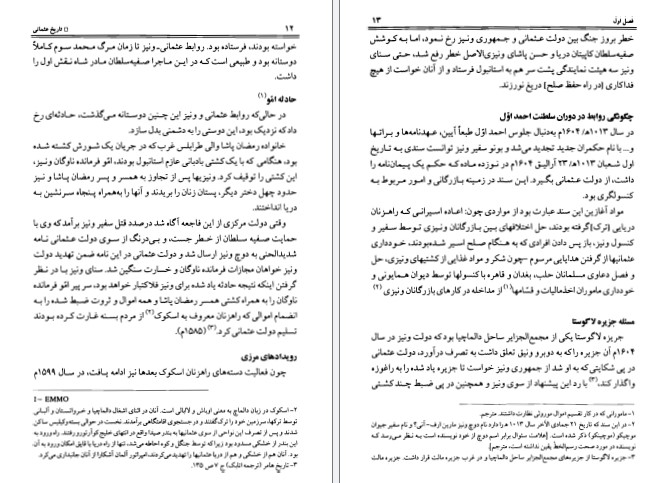 ۱۲ □ تاریخ عثمانی
خواسته بودند، فرستاده بود. روابط عثمانی ـ ونیز تا زمان مرگ محمد سوم کاملاً
دوستانه بود و طبیعی است که در این ماجرا صفیه‌سلطان مادر شاه نقش اول را
داشت.
حادثه امّو(۱)
در حالی‌که روابط عثمانی و ونیز این چنین دوستانه می‌گذشت، حادثه‌ای رخ
داد که نزدیک بود، این دوستی را به دشمنی بدل سازد.
خانواده رمضان پاشا والی طرابلس غرب که در جریان یک شورش کشته شده
بود، هنگامی که با یک کشتی بادبانی عازم استانبول بودند، امّو فرمانده ناوگان ونیز،
این کشتی را توقیف کرد. ونیزیها پس از تجاوز به همسر و پسر رمضان پاشا و نیز
حدود چهل دختر دیگر، پستان زنان را بریدند و آنها را به‌همراه پنجاه سرنشین به
دریا انداختند.
وقتی دولت مرکزی از این فاجعه آگاه شد درصدد قتل سفیر ونیز برآمد که وی با
حمایت صفیه سلطان از خطر جست، و بی‌درنگ از سوی دولت عثمانی نامه
شدیدالحنی به دوج ونیز ارسال شد و دولت عثمانی در این نامه ضمن تهدید دولت
ونیز خواهان مجازات فرمانده ناوگان و خسارت سنگین شد. سنای ونیز با در نظر
گرفتن اینکه نتیجه حادثه یاد شده برای ونیز فلاکتبار خواهد بود، سر پیر امّو فرمانده
ناوگان را به همراه کشتی همسر رمضان پاشا و همه اموال و ثروت ضبط شده را به
انضمام اموالی که راهزنان معروف به اسکوک(۲) از مردم بسته غارت کرده بودند
تسلیم دولت عثمانی کرد.(۳) (۱۵۸۵م).
رویدادهای مرزی
چون فعالیت دسته‌های راهزنان اسکوک بعدها نیز ادامه یافت، در سال ۱۵۹۹م
1- EMMO
۲- اسکوک در زبان دالماچ به معنی اوباش و لاابالی است. آنان در اثنای اشغال دالماچیا و خرواتستان و آلبانی
توسط ترکها، سرزمین خود را ترک‌گفتند و در جستجوی اقامتگاهی برآمدند. نخست در حوالی بسته‌وکیلیس ساکن
شدند و پس از تصرف این نواحی از سوی عثمانیها به بندر صیدا واقع در انتهای خلیج کوآرنرو رفتند. راه ورود به
این بندر از خشکی مسدود بود زیرا که توسط جنگل و کوه احاطه می‌شد، تنها از راه دریا با قایق امکان ورود به آن
بود. آنان هم از خشکی و هم از دریا عثمانیها را تهدید می‌کردند، امپراتور آلمان آشکارا از آنان جانبداری می‌کرد.
۳- تاریخ هامر (ترجمه اتابک) ج ۷ ص ۱۳۵.
فصل اول ۱۳
خطر بروز جنگ بین دولت عثمانی و جمهوری ونیز رخ نمود، اما به کوشش
صفیه‌سلطان کاپیتان دریا و حسن پاشای ونیزی‌الاصل خطر رفع شد، حتی سنای
ونیز سه هیئت نمایندگی پشت سر هم به استانبول فرستاد و از آنان خواست از هیچ
فداکاری [در راه حفظ صلح] دریغ نورزند.
چگونگی روابط در دوران سلطنت احمد اوّل
در سال ۱۰۱۳هـ/۱۶۰۴م به‌دنبال جلوس احمد اوّل طبعاً آیین، عهدنامه‌ها و براتها
و... با نام حکمران جدید تجدید می‌شد و بونو سفیر ونیز توانست سندی به تاریخ
اول شعبان ۱۰۱۳هـ/ ۲۳ آرالیق ۱۶۰۴م در نوزده ماده که حکم یک پیمان‌نامه را
داشت، از دولت عثمانی بگیرد. این سند در زمینه بازرگانی و امور مربوط به
کنسولگری بود.
مواد آغازین این سند عبارت بود از مواردی چون: اعاده اسیرانی که راهزنان
دریایی [ترک]گرفته بودند، حل اختلافهای بین بازرگانان ونیزی توسط سفیر و
کنسول ونیز، باز پس دادن افرادی که به هنگام صلح اسیر شده‌بودند، خودداری
عثمانیها از گرفتن هدایایی مرسوم -چون شکر و مواد غذایی از کشتیهای ونیزی، حل
و فصل دعاوی مسلمانان حلب، بغدان و قاهره با کنسولها توسط دیوان همایونی و
خودداری ماموران اخذمالیات و قسّامها(۱) از مداخله در کارهای بازرگانان ونیزی(۲)
مسئله جزیره لاگوستا
جزیره لاگوستا یکی از مجمع‌الجزایر ساحل دالماچیا بود که دولت ونیز در سال
۱۶۰۴م آن جزیره را که به دوبرو ونیق تعلق داشت به تصرف درآورد، دولت عثمانی
در پی شکایتی که به او شد از جمهوری ونیز خواست تا جزیره یاد شده را به راغوزه
واگذار کند.(۳) با رد این پیشنهاد از سوی ونیز و همچنین در پی ضبط چند کشتی
۱- مامورانی که در کار تقسیم اموال موروثی نظارت داشتند. مترجم.
۲- در این سند که تاریخ ۲۱ جمادی الآخر سال ۱۰۱۳ هـ را دارد نام دوج ونیز مارین ارف-آنی؟ و نام سفیر جیوان
موچیکو (موچنیکو) ذکر شده است. [علامت سئوال برابر اسم دوج از خود نویسنده است به نظر می‌رسد که
نویسنده در مورد صحت رسم‌الخط یقین نداشته است، مترجم]
۳- جزیره لاگوستا از جزیره‌های مجمع‌الجزایر ساحل دالماچیا و در غرب جزیره مالت قرار داشت. جزیره مالت